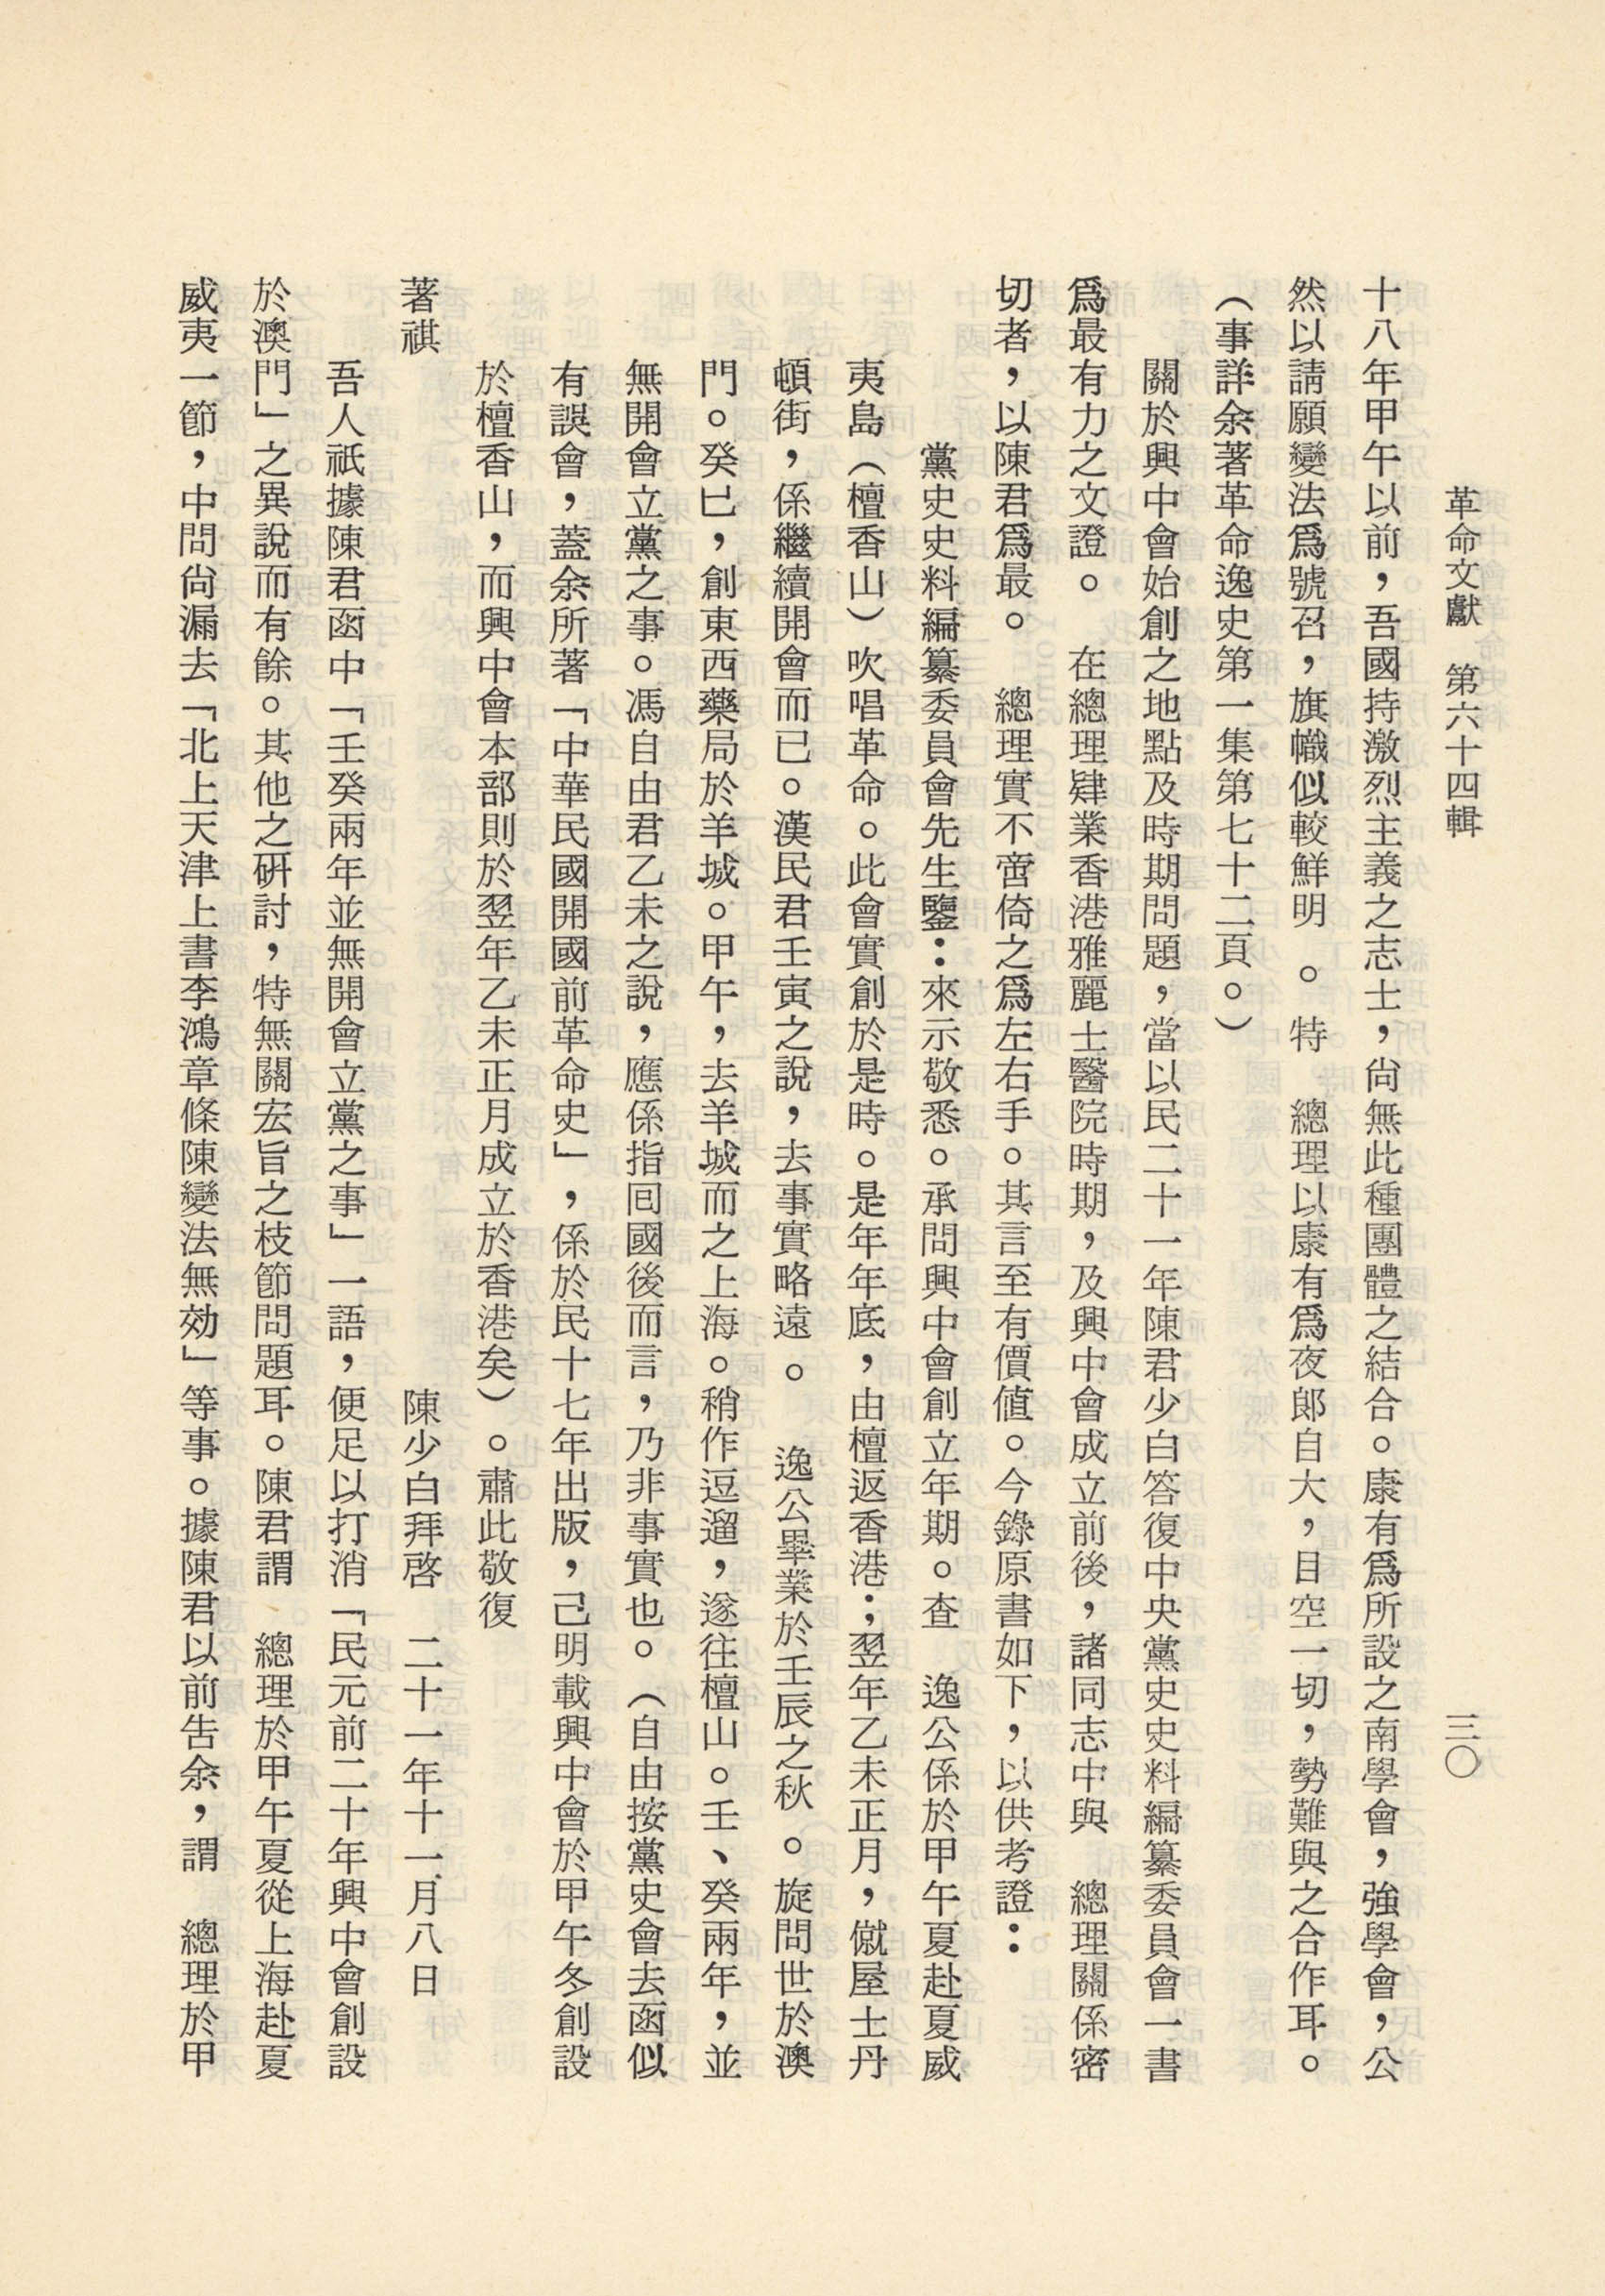 革命文獻　第六十四輯　三〇
十八年甲午以前，吾國持激烈主義之志士，尙無此種團體之結合。康有爲所設之南學會，強學會，公
然以請願變法爲號召，旗幟似較鮮明　。　特　總理以康有爲夜郞自大，目空一切，勢難與之合作耳。
（事詳余著革命逸史第一集第七十二頁。）
關於興中會始創之地點及時期問題，當以民二十一年陳君少白答復中央黨史史料編纂委員會一書
爲最有力之文證。　在總理肄業香港雅麗士醫院時期，及興中會成立前後，諸同志中與　總理關係密
切者，以陳君爲最。　總理實不啻倚之爲左右手。其言至有價値。今錄原書如下，以供考證：
黨史史料編纂委員會先生鑒：來示敬悉。承問興中會創立年期。查　逸公係於甲午夏赴夏威
夷島（檀香山）吹唱革命。此會實創於是時。是年年底，由檀返香港；翌年乙未正月，僦屋士丹
頓街，係繼續開會而已。漢民君壬寅之說，去事實略遠　。　逸公畢業於壬辰之秋　。旋問世於澳
門。癸巳，創東西藥局於羊城。甲午，去羊城而之上海。稍作逗遛，遂往檀山。壬、癸兩年，並
無開會立黨之事。馮自由君乙未之說，應係指囘國後而言，乃非事實也。（自由按黨史會去函似
有誤會，蓋余所著「中華民國開國前革命史」，係於民十七年出版，己明載興中會於甲午冬創設
於檀香山，而興中會本部則於翌年乙未正月成立於香港矣）。肅此敬復
著祺
陳少白拜啓　二十一年十一月八日
吾人祇據陳君函中「壬癸兩年並無開會立黨之事」一語，便足以打消「民元前二十年興中會創設
於澳門」之異說而有餘。其他之硏討，特無關宏旨之枝節問題耳。陳君謂　總理於甲午夏從上海赴夏
威夷一節，中問尙漏去「北上天津上書李鴻章條陳變法無効」等事。據陳君以前吿余，謂　總理於甲